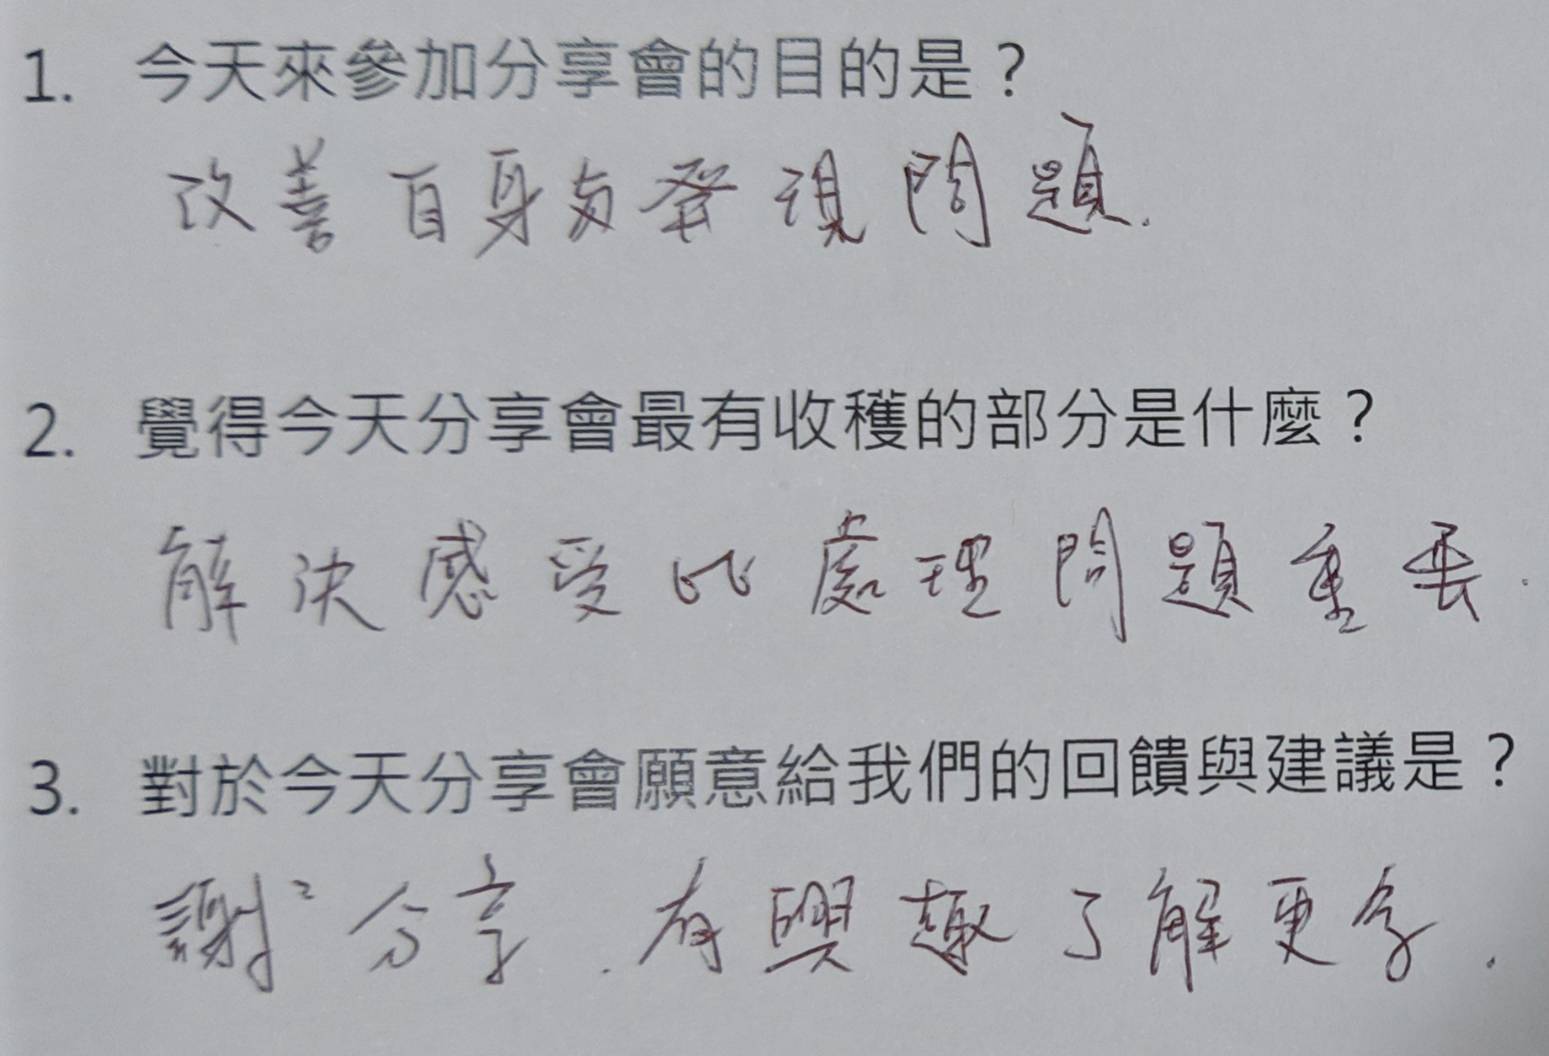 1. 今天來參加分享會的目的是？
改善自身與發現問題.
2. 覺得今天分享會最有收穫的部分是什麼？
解決感受比處理問題重要.
3. 對於今天分享會願意給我們的回饋與建議是？
謝²分享.有興趣了解更多.